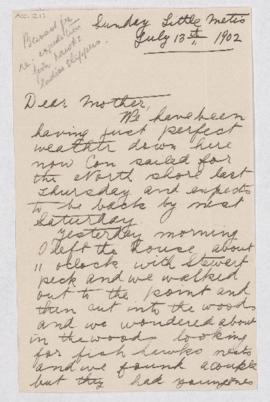 Acc. 213
Sunday Little Metis
July 13th, 1902
Dear Mother,
We have been
having just perfect
weather down here
now Con sailed for
the North shore last
Thursday and expects
to be back by next
Saturday
Yesterday morning
I left the house about
11 oclock with Stewert
peck and we walked
out to the point and
then cut into the woods
and we wondered about
in the woods looking
for fish hawks nests
and we found a couple
but they had young ones